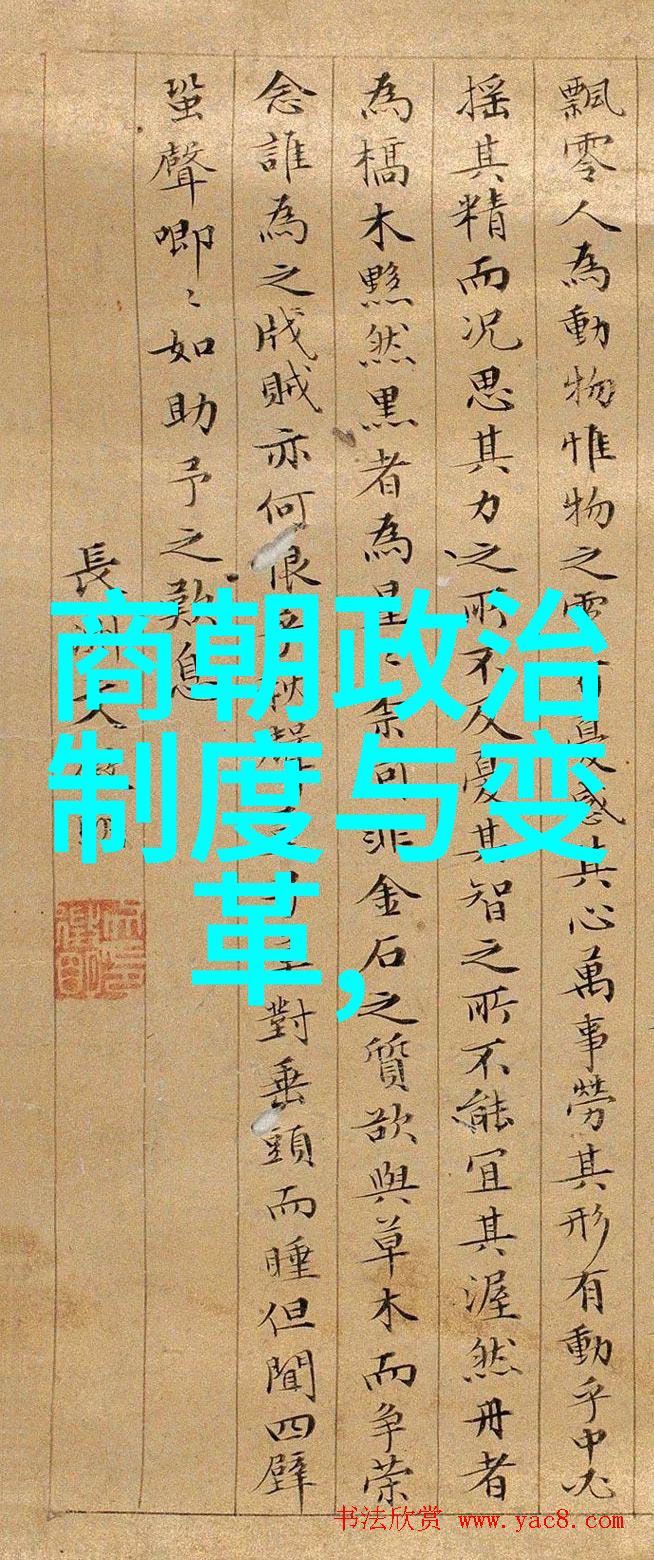 飄零人為動物惟物之靈憂感其心萬事勞其形有動乎中必
搖其精而況思其力之所不及憂其智之所不能宜其渥然丹者
為槁木黟然黑者為星奈何非金石之質欲與草木而爭榮
念誰為之戕賊亦何恨乎秋聲對垂頭而睡但聞四壁
蛩聲唧〻如助予之歎息
長洲文明
商朝政治
制度与变
革,
书法欣赏 www.yac8.com